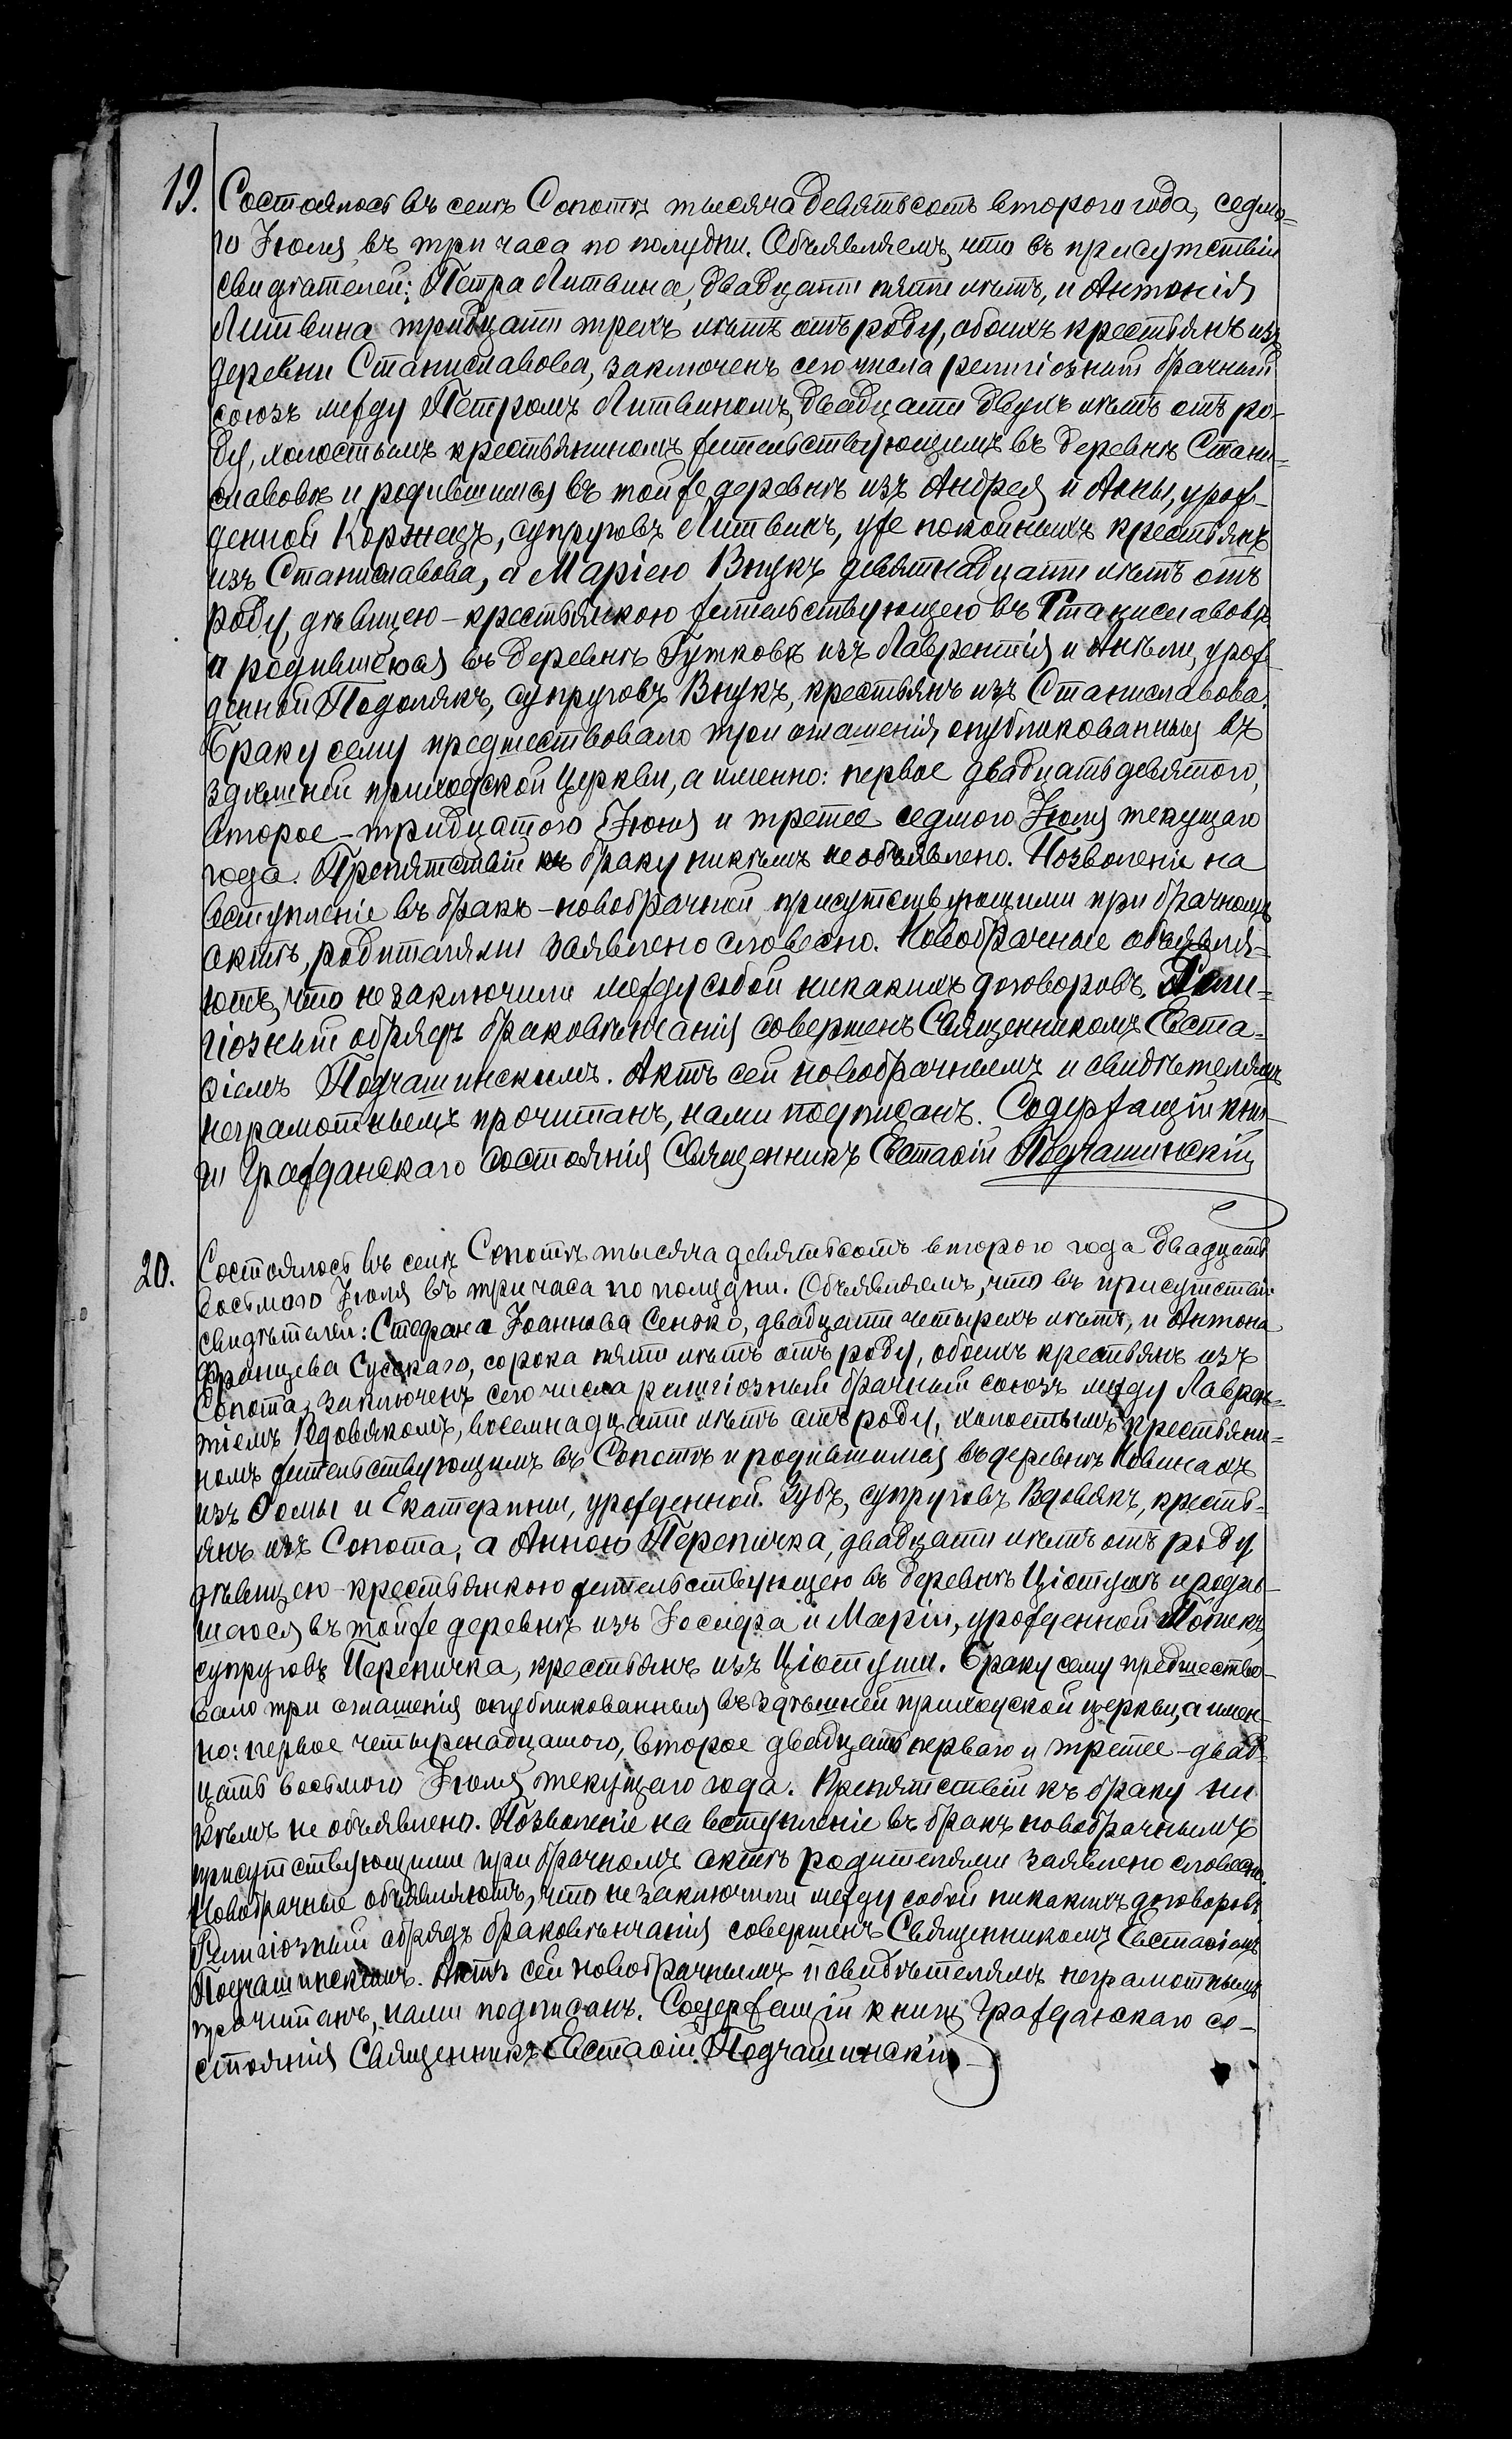 19. Состоялось въ селѣ Сопотѣ тысяча девятьсотъ второго года, седмо-
го Іюля, въ три часа по полудни. Объявляемъ, что въ присутствіи
свидѣтелей: Петра Литвина, двадцати пяти лѣтъ, и Антонія
Литвина тридцати трехъ лѣтъ отъ роду, обоихъ крестьянъ изъ
деревни Станиславова, заключенъ сего числа религіозный брачный
союзъ между Петромъ Литвиномъ, двадцати двухъ лѣтъ отъ ро-
ду, холостымъ крестьяниномъ жительствующимъ въ деревнѣ Стани-
славовѣ и родившимся въ той же деревнѣ изъ Андрея и Анны, урож-
денной Коржнецъ, супруговъ Литвинъ, уже покойныхъ крестьянъ
изъ Станиславова, а Маріею Внукъ девятнадцати лѣтъ отъ
роду, дѣвицею-крестьянкою жительствующею въ Станиславовѣ
и родившеюся въ деревнѣ Гутковѣ изъ Лаврентія и Анѣли, урож-
денной Подолякъ, супруговъ Внукъ, крестьянъ изъ Станиславова.
Браку сему предшествовало три оглашенія, опубликованныя въ
здѣшней приходской Церкви, а именно: первое двадцать девятого,
второе-тридцатого Іюня и третее седмого Іюля текущаго
года. Препятствій къ браку никѣмъ не объявлено. Позволеніе на
вступленіе въ бракъ-новобрачной присутствующими при брачномъ
актѣ, родителями заявлено словесно. Новобрачные объявля-
ютъ, что не заключили между собой никакихъ договоровъ. Рели-
гіозный обрядъ браковѣнчанія совершенъ Священникомъ Еста-
фіемъ Подчашинскимъ. Актъ сей новобрачнымъ и свидѣтелямъ
неграмотнымъ прочитанъ, нами подписанъ. Содержащій кни-
ги Гражданскаго состоянія Священникъ Естафій Подчашинскій
20. Состоялось въ селѣ Сопотѣ тысяча девятьсотъ второго года двадцать
восьмого Іюля въ три часа по полудни. Объявляемъ, что въ присутствіи
свидѣтелей: Стефана Іоаннова Сенько, двадцати четырехъ лѣтъ, и Антона
Францева Сусскаго, сорока пяти лѣтъ отъ роду, обоихъ крестьянъ изъ
Сопота, заключенъ сего числа религіозный брачный союзъ между Лаврен-
тіемъ Вдовякомъ, восемнадцати лѣтъ отъ роду, холостымъ крестьяни-
номъ жительствующимъ въ Сопотѣ и родившимся въ деревнѣ Новинахъ
изъ Ѳомы и Екатерины, урожденной Зубъ, супруговъ Вдовякъ, кресть-
янъ изъ Сопота, а Анною Перепичка, двадцати лѣтъ отъ роду
дѣвицею-крестьянкою жительствующею въ деревнѣ Ціотушѣ и родив-
шеюся въ той же деревнѣ изъ Іосифа и Маріи, урожденной Попекъ,
супруговъ Перепичка, крестьянъ изъ Ціотуши. Браку сему предшество-
вало три оглашенія опубликованныя въ здѣшней приходской церкви, а имен-
но: первое четыренадцатого, второе двадцать перваго и третее-двад-
цать восьмого Іюля текущаго года. Препятствій къ браку ни
кѣмъ не объявлено. Позволеніе на вступленіе въ бракъ новобрачнымъ
присутствующими при брачномъ актѣ родителями заявлено словесно.
Новобрачные объявляютъ, что не заключили между собой никакихъ договоровъ.
Религіозный обрядъ браковѣнчанія совершенъ Священникомъ Естафіемъ
Подчашинскимъ. Актъ сей новобрачнымъ и свидѣтелямъ неграмотнымъ
прочитанъ, нами подписанъ. Содержащій книги Гражданскаго со-
стоянія Священникъ Естафій Подчашинскій